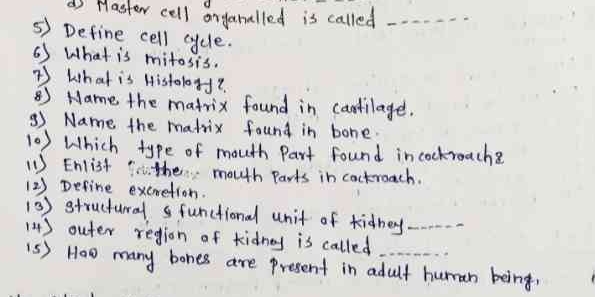 d) Master cell organalled is called -------
5) Define cell cycle.
6) What is mitosis.
7) What is Histology?
8) Name the matrix found in cartilage.
9) Name the matrix found in bone.
10) Which type of mouth Part found in cockroach?
11) Enlist the mouth Parts in cockroach.
12) Define excretion.
13) structural & functional unit of kidney ------
14) outer region of kidney is called -------
15) How many bones are Present in adult human being,